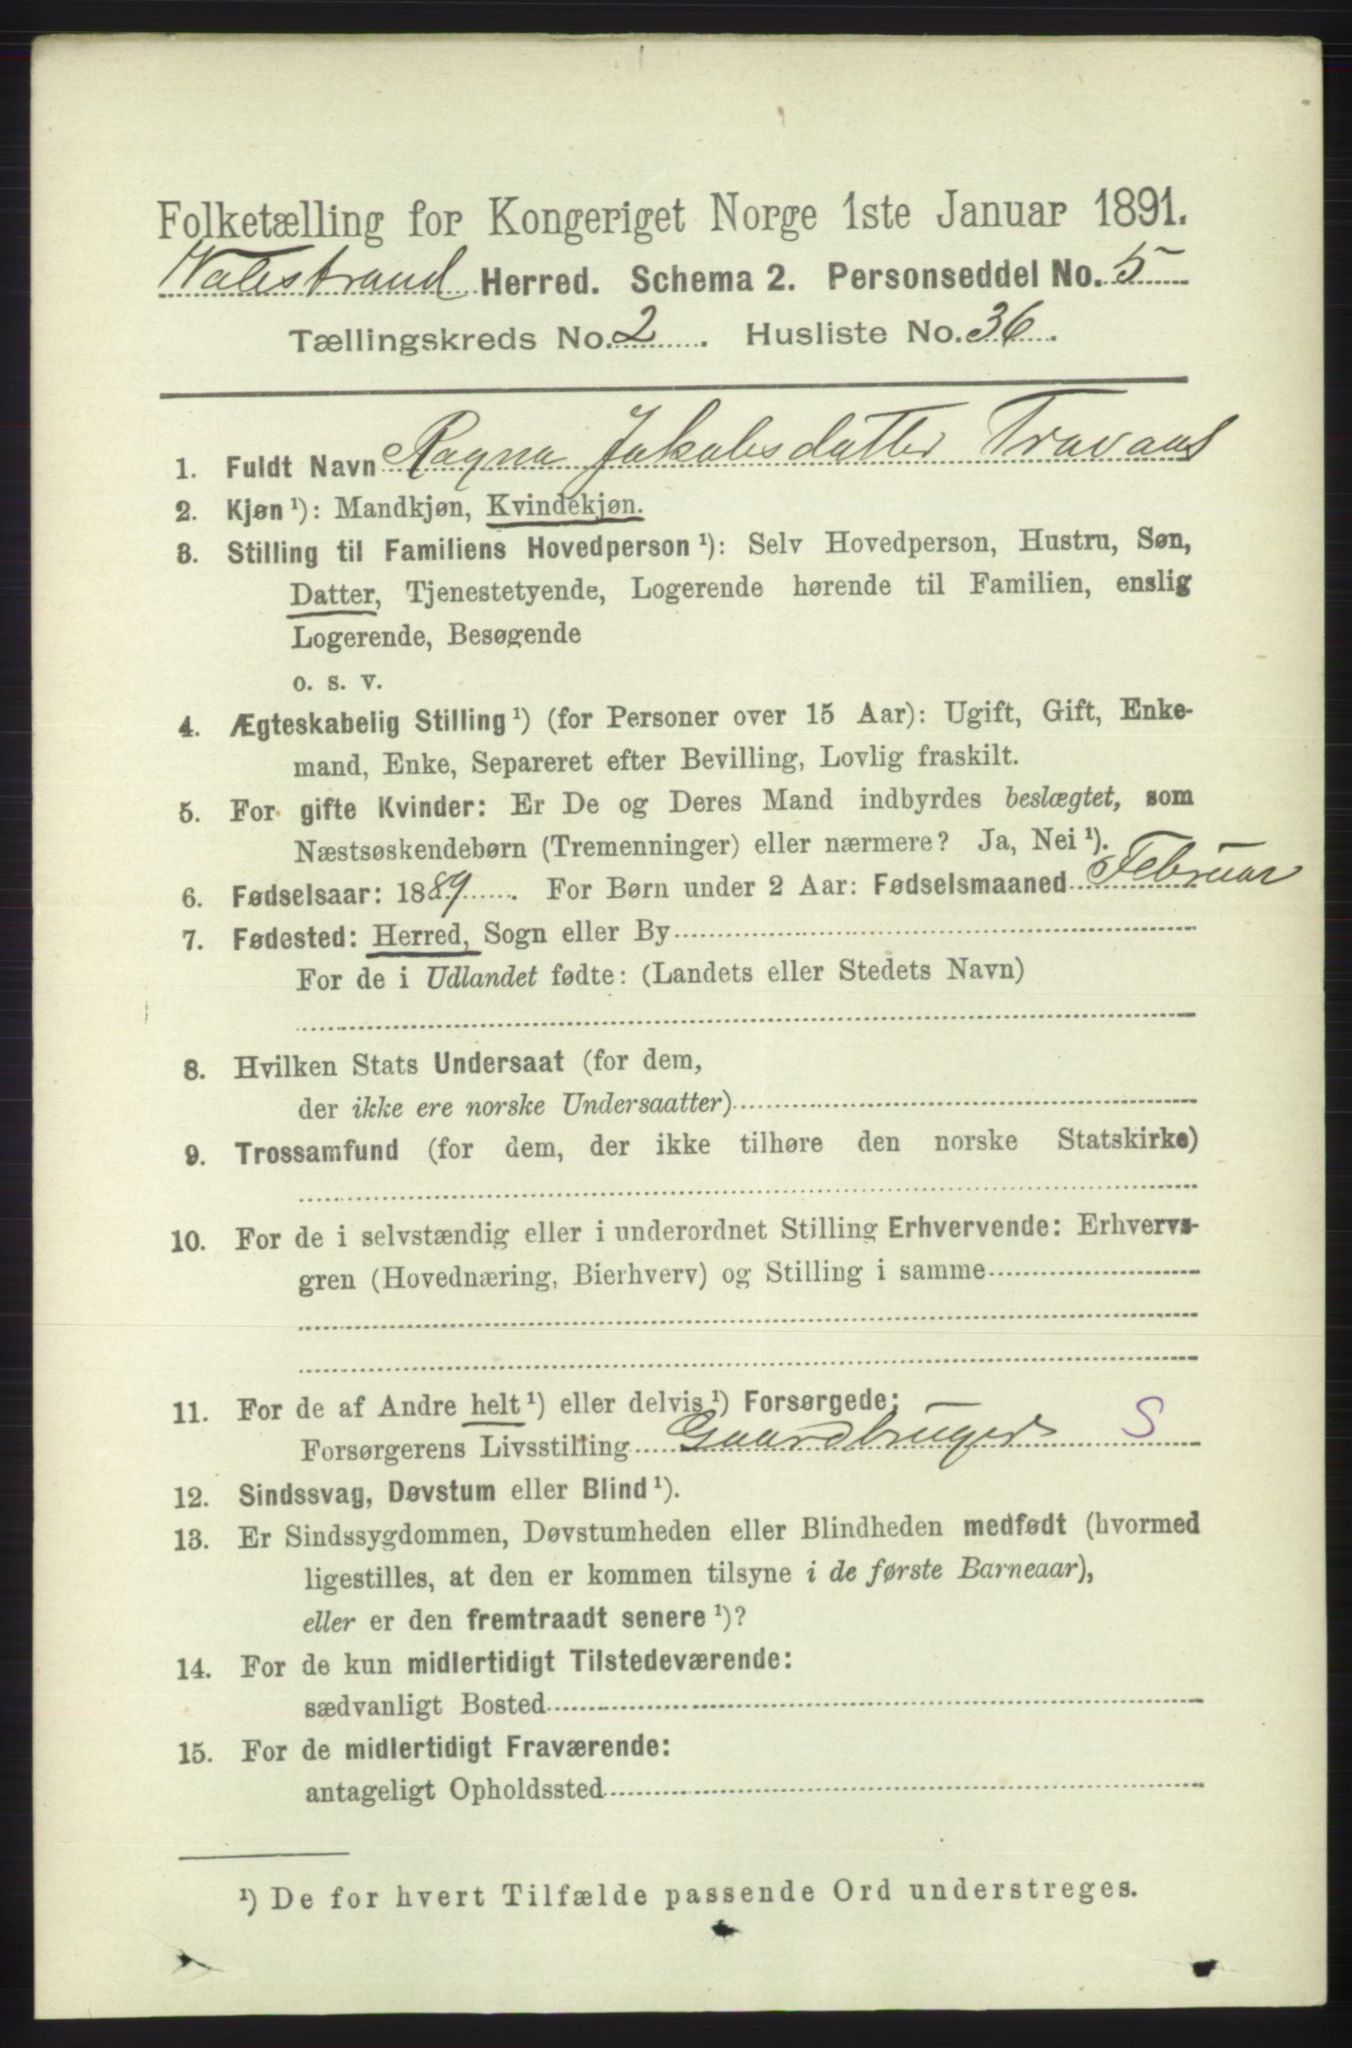 Folketælling for Kongeriget Norge 1ste Januar 1891.
Valestrand Herred. Schema 2. Personseddel No. 5
Tællingskreds No. 2. Husliste No. 36.
1. Fuldt Navn Ragna Jakobsdatter
2. Kjøn ¹): Mandkjøn, Kvindekjøn.
3. Stilling til Familiens Hovedperson ¹): Selv Hovedperson, Hustru, Søn,
Datter, Tjenestetyende, Logerende hørende til Familien, enslig
Logerende, Besøgende
o. s. v.
4. Ægteskabelig Stilling ¹) (for Personer over 15 Aar): Ugift, Gift, Enke-
mand, Enke, Separeret efter Bevilling, Lovlig fraskilt.
5. For gifte Kvinder: Er De og Deres Mand indbyrdes beslægtet, som
Næstsøskendebørn (Tremenninger) eller nærmere? Ja, Nei ¹).
6. Fødselsaar: 1889. For Børn under 2 Aar: Fødselsmaaned Februar
7. Fødested: Herred, Sogn eller By
For de i Udlandet fødte: (Landets eller Stedets Navn)
8. Hvilken Stats Undersaat (for dem,
der ikke ere norske Undersaatter)
9. Trossamfund (for dem, der ikke tilhøre den norske Statskirke)
10. For de i selvstændig eller i underordnet Stilling Erhvervende: Erhvervs-
gren (Hovednæring, Bierhverv) og Stilling i samme
11. For de af Andre helt ¹) eller delvis ¹) Forsørgede:
Forsørgerens Livsstilling Gaardbruger S
12. Sindssvag, Døvstum eller Blind ¹).
13. Er Sindssygdommen, Døvstumheden eller Blindheden medfødt (hvormed
ligestilles, at den er kommen tilsyne i de første Barneaar),
eller er den fremtraadt senere ¹)?
14. For de kun midlertidigt Tilstedeværende:
sædvanligt Bosted
15. For de midlertidigt Fraværende:
antageligt Opholdssted
¹) De for hvert Tilfælde passende Ord understreges.